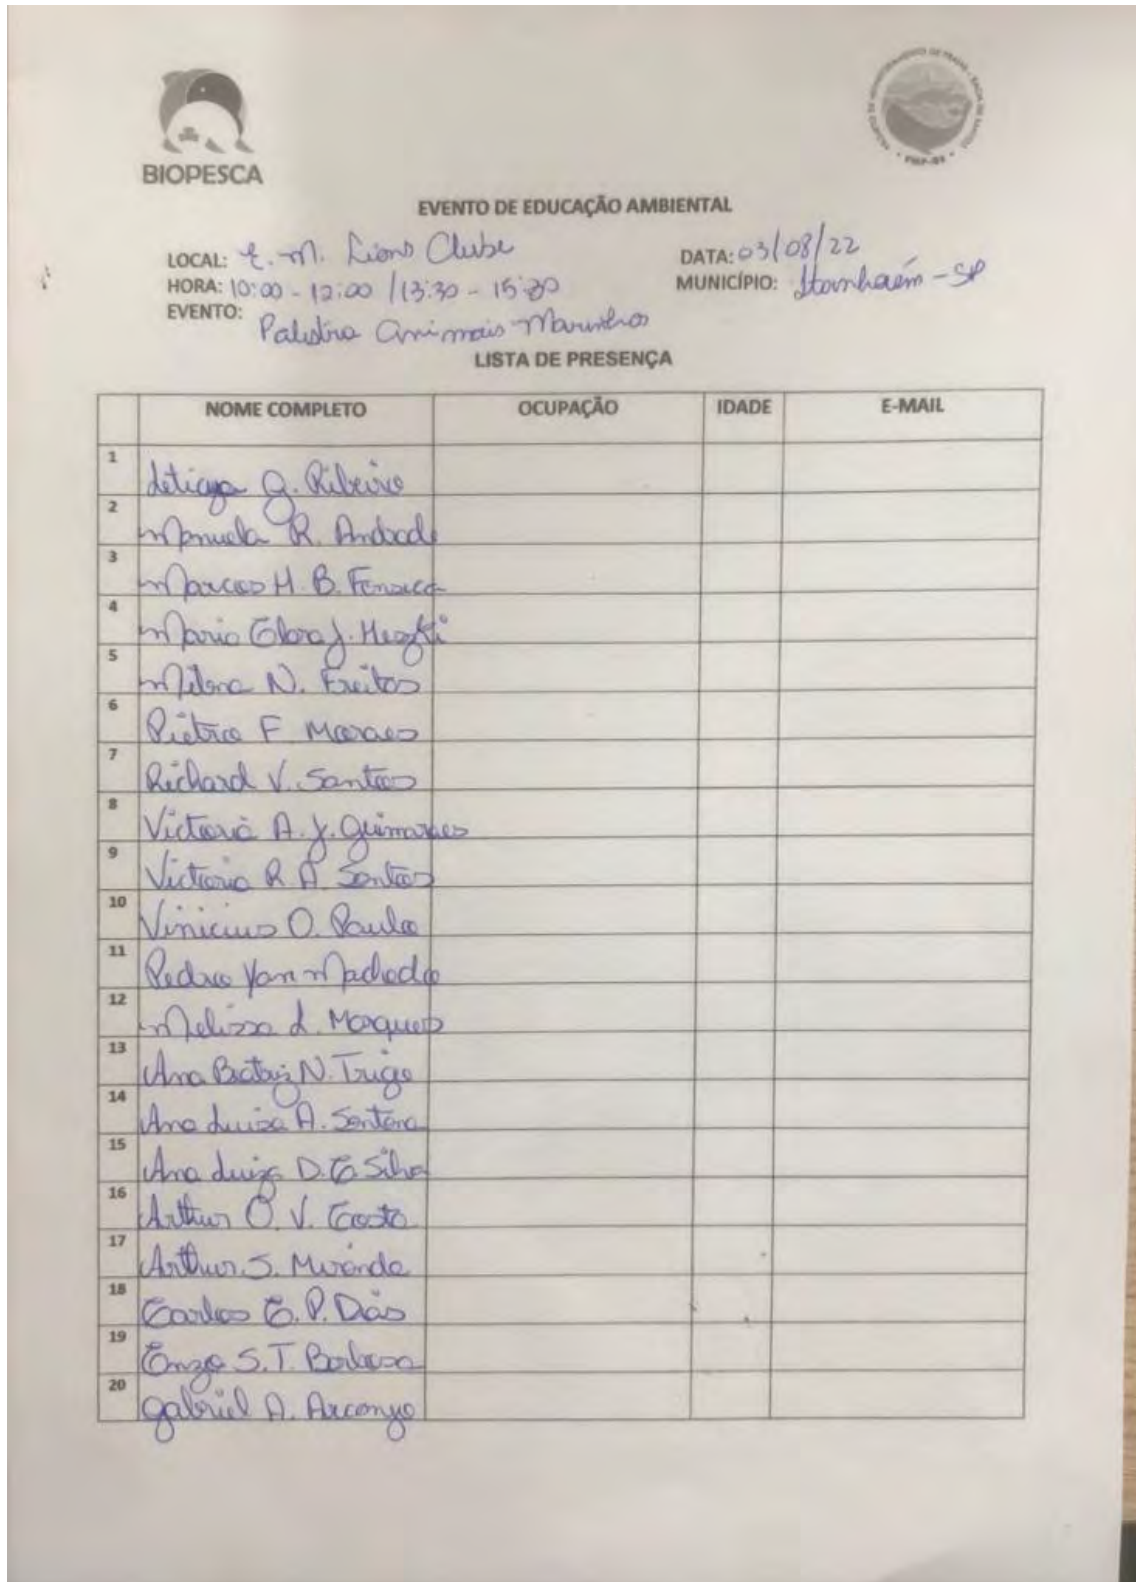 BIOPESCA
EVENTO DE EDUCAÇÃO AMBIENTAL
LOCAL: E. M. Lions Clube DATA: 03/08/22
HORA: 10:00 - 12:00 / 13:30 - 15:30 MUNICÍPIO: Itanhaém - SP
EVENTO: Palestra Animais Marinhos
LISTA DE PRESENÇA
NOME COMPLETO OCUPAÇÃO IDADE E-MAIL
1 Leticya G. Ribeiro
2 Manuela R. Andrade
3 Marcos H. B. Fonseca
4 Maria Clara J.
5 Milena N. Freitas
6 Pietra F. Moraes
7 Richard V. Santos
8 Victoria A. J. Guimaraes
9 Victoria R. A. Santos
10 Vinicius O. Paulo
11 Pedro Yan Machado
12 Melissa L. Marques
13 Ana Beatriz N. Trigo
14 Ana Luiza A. Santana
15 Ana Luiza D. C. Silva
16 Arthur O. V. Costa
17 Arthur S. Miranda
18 Carlos E. P. Dias
19 Enzo S. T. Barbosa
20 Gabriel A. Arcanjo